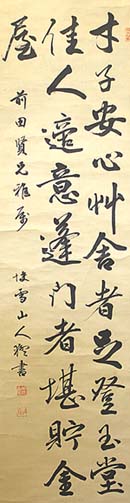 才子安心艸舍者足登玉堂
佳人適意蓬門者堪貯金
屋
前田賢兄雅属
雪山人書